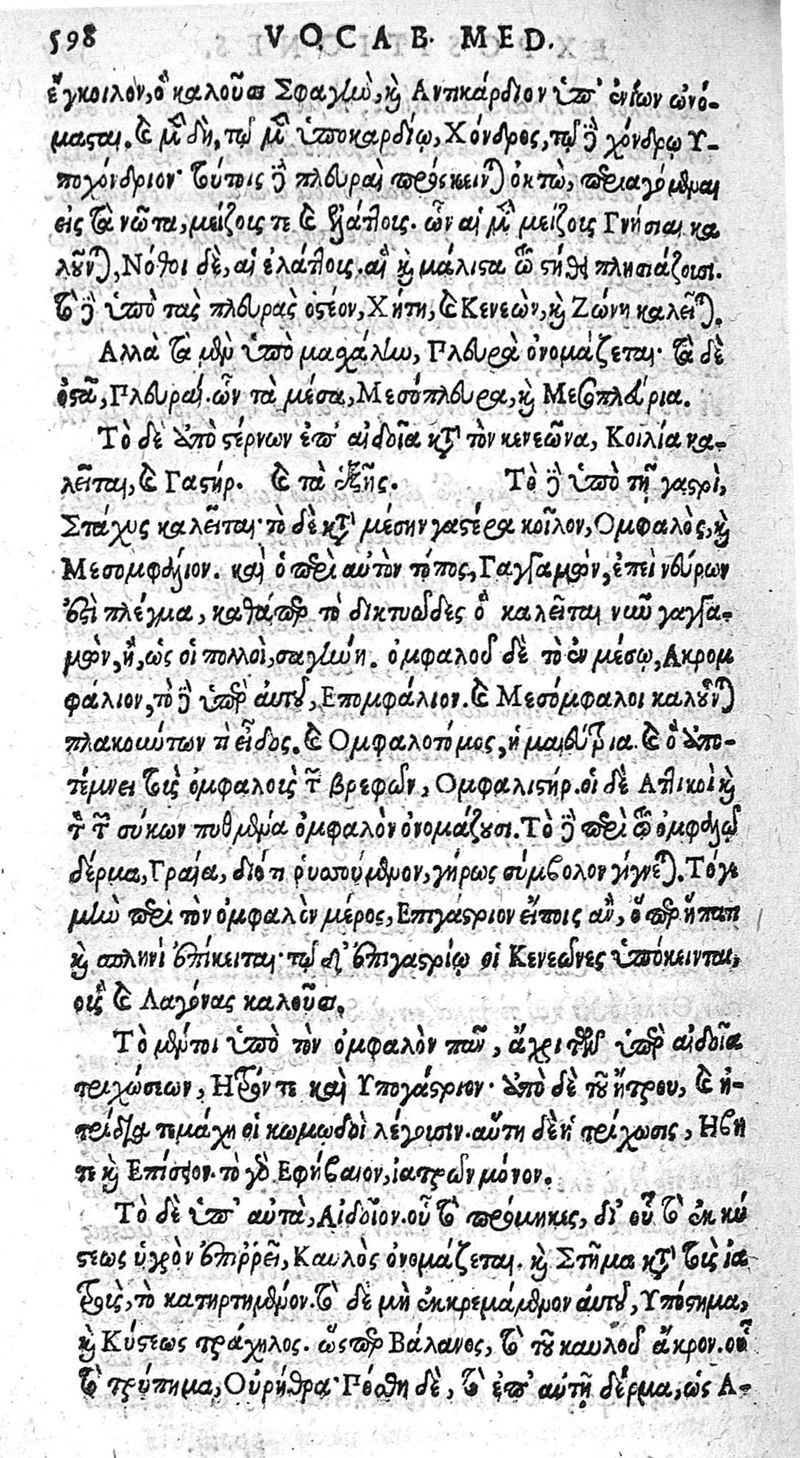 598 VOCAB. MED.
ἔγκοιλον, ὃ καλοῦσι Σφαγίω, κὶ Αντικάρδιον ὑπ' ἐνίων ὠνό-
μασται. καὶ μὲν δὴ, τῷ μὲν ὑποκαρδίῳ, Χόνδρος, τῷ δὲ χόνδρῳ Υ-
ποχόνδριον· τούτοις δὲ πλευραὶ πρόσκεινται ὀκτὼ, περιαγόμεναι
εἰς τὰ νῶτα, μείζοις τε καὶ ἐλάττοις. ὧν αἱ μὲν μείζοις Γνήσιαι κα
λοῦνται, Νόθοι δὲ, αἱ ἐλάττοις. αἳ καὶ μάλιστα τῷ στήθει πλησιάζουσι.
τὸ δὲ ὑπὸ τὰς πλευρὰς ὀστέον, Χήτη, καὶ Κενεὼν, καὶ Ζώνη καλεῖται.
Αλλὰ τὰ μὲν ὑπὸ μαχάλην, Πλευρὰ ὀνομάζεται· τὰ δὲ
ὀστᾶ, Πλευραί. ὧν τὰ μέσα, Μεσόπλευρα, καὶ Μεσοπλεύρια.
Τὸ δὲ ἀπὸ στέρνων ἐπ' αἰδοῖα κατὰ τὸν κενεῶνα, Κοιλία κα-
λεῖται, καὶ Γαστήρ. καὶ τὰ ἑξῆς. Τὸ δὲ ὑπὸ τῇ γαστρὶ,
Στάχυς καλεῖται· τὸ δὲ κατὰ μέσην γαστέρα κοῖλον, Ομφαλὸς, καὶ
Μεσομφάλιον. καὶ ὁ περὶ αὐτὸν τόπος, Γαγγαμὼν, ἐπεὶ νεύρων
ἐστὶ πλέγμα, καθάπερ τὸ δικτυῶδες ὃ καλεῖται νῦν γαγγα-
μὼν, ἢ, ὡς οἱ πολλοὶ, σαγήνη. ὀμφαλοῦ δὲ τὸ ἐν μέσῳ, Ακρομ
φάλιον, τὸ δὲ ὑπὲρ αὐτοῦ, Επομφάλιον. καὶ Μεσόμφαλοι καλοῦνται
πλακούντων τι εἶδος. καὶ Ομφαλοτόμος, ἡ μαιεύτρια. καὶ ὃ ἀπο-
τέμνει τοῖς ὀμφαλοῖς τῶν βρεφῶν, Ομφαλιστήρ. οἱ δὲ Αττικοὶ καὶ
τὸν τῶν σύκων πυθμένα ὀμφαλὸν ὀνομάζουσι. Τὸ δὲ περὶ τῷ ὀμφαλῷ
δέρμα, Γραῖα, διότι ῥυσούμενον, γήρως σύμβολον γίγνεται. Τό γε
μὴν περὶ τὸν ὀμφαλὸν μέρος, Επιγάστριον εἴποις ἂν, ὅπερ ἥπατι
καὶ σπληνὶ ἐπίκειται· τῷ δ' ἐπιγαστρίῳ οἱ Κενεῶνες ὑπόκεινται,
οἷς καὶ Λαγόνας καλοῦσι.
Τὸ μέντοι ὑπὸ τὸν ὀμφαλὸν πᾶν, ἄχρι τῶν ὑπὲρ αἰδοῖα
τριχώσεων, Ητρόν τε καὶ Υπογάστριον· ἀπὸ δὲ τοῦ ἤτρου, καὶ ἠ-
τρίδια τεμάχη οἱ κωμῳδοὶ λέγουσιν. αὕτη δὲ ἡ τρίχωσις, Ηβη
τε καὶ Επίσειον. τὸ γὰρ Εφήβαιον, ἰατρῶν μόνον.
Τὸ δὲ ὑπ' αὐτὰ, Αἰδοῖον. οὗ τὸ πρόμηκες, δι' οὗ τὸ ἐκ κύ
στεως ὑγρὸν ἐπιῤῥεῖ, Καυλὸς ὀνομάζεται. καὶ Στῆμα κατὰ τοῖς ἰα
τροῖς, τὸ κατηρτημένον. τὸ δὲ μὴ ἐκκρεμάμενον αὐτοῦ, Υπόστημα,
καὶ Κύστεως τράχηλος. ὥσπερ Βάλανος, τὸ τοῦ καυλοῦ ἄκρον. οὗ
τὸ τρύπημα, Οὐρήθρα· Πόσθη δὲ, τὸ ἐπ' αὐτῇ δέρμα, ὡς Α-